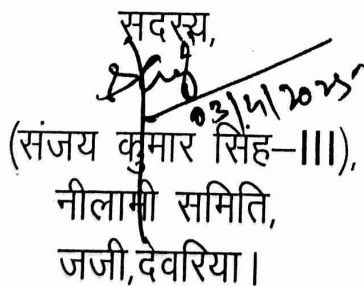 सदस्य,
03/11/2025
(संजय कुमार सिंह–III),
नीलामी समिति,
जजी,देवरिया।